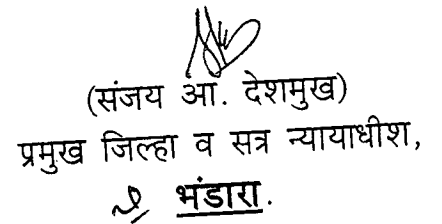 (संजय आ. देशमुख)
प्रमुख जिल्हा व सत्र न्यायाधीश,
भंडारा.